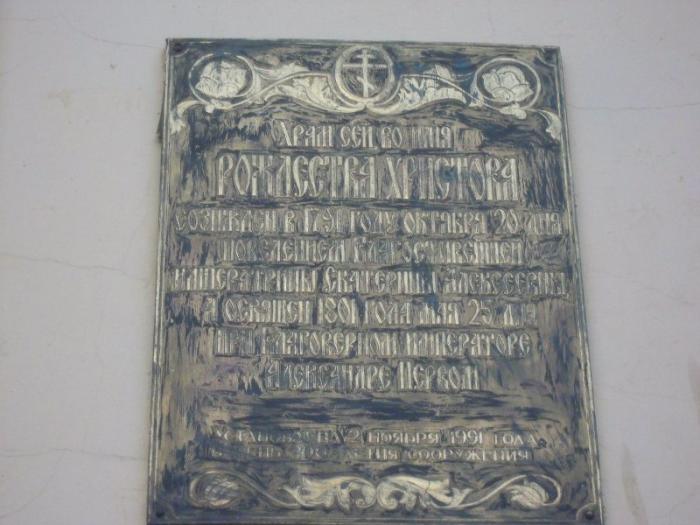 Храм сей во имя
Рождества Христова
созижден в 1791 году октября 20 дня
повелением благочестивейшей
императрицы Екатерины Алексеевны
а освящен 1801 года мая 25 дня
при благоверном императоре
Александре Первом
установлена 2 ноября 1991 года
в сооружения